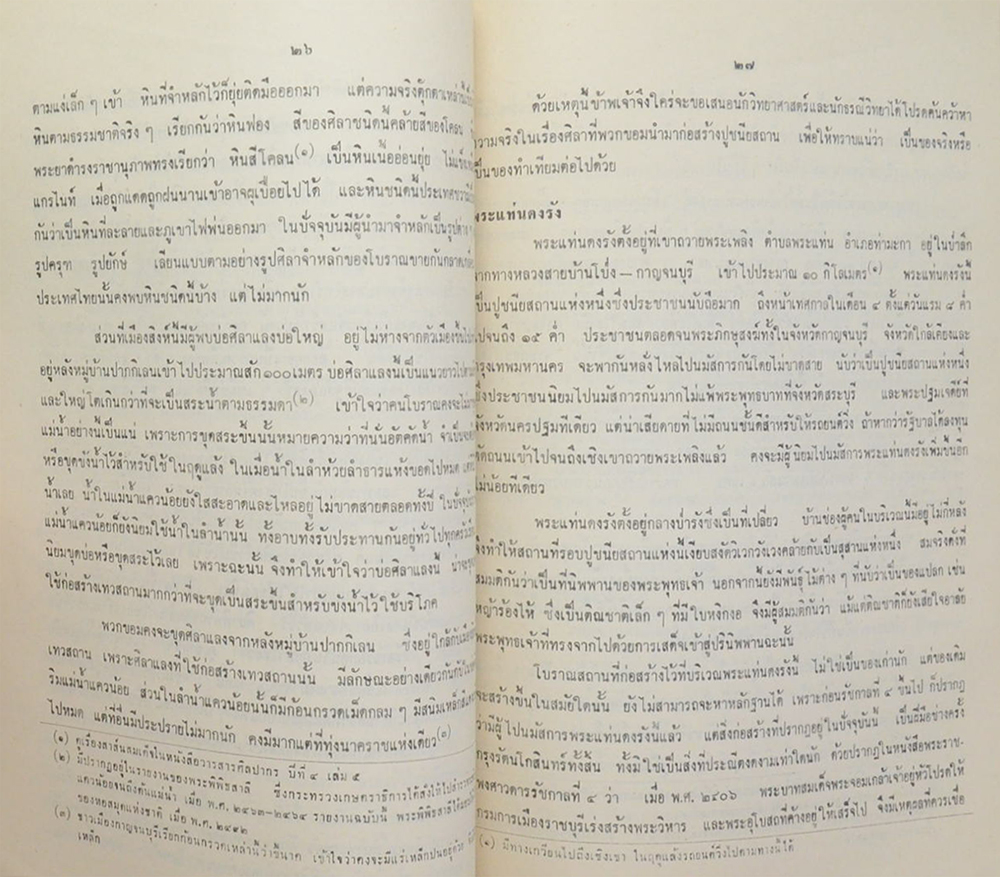 ๒๖
ตามแง่เล็ก ๆ เข้า หินที่จำหลักไว้ก็ยุ่ยติดมือออกมา แต่ความจริงตุ๊กตาเหล่านี้
หินตามธรรมชาติจริง ๆ เรียกกันว่าหินฟอง สีของศิลาชนิดนี้คล้ายสีของโคลน
พระยาดำรงราชานุภาพทรงเรียกว่า หินสีโคลน(๑) เป็นหินเนื้ออ่อนยุ่ย
แกรไนท์ เมื่อถูกแดดถูกฝนนานเข้าอาจผุเปื่อยไปได้ และหินชนิดนี้ประเทศ
กันว่าเป็นหินที่ละลายและภูเขาไฟพ่นออกมา ในปัจจุบันมีผู้นำมาจำหลักเป็นรูปต่าง
รูปครุฑ รูปยักษ์ เลียนแบบตามอย่างรูปศิลาจำหลักของโบราณขายกัน
ประเทศไทยนั้นคงพบหินชนิดนี้บ้าง แต่ไม่มากนัก
ส่วนที่เมืองสิงห์นี้มีผู้พบบ่อศิลาแลงบ่อใหญ่ อยู่ไม่ห่างจากตัวเมือง
อยู่หลังหมู่บ้านปากกิเลนเข้าไปประมาณสัก ๑๐๐ เมตร บ่อศิลาแลงนี้เป็นแนวยาว
และใหญ่โตเกินกว่าที่จะเป็นสระน้ำตามธรรมดา(๒) เข้าใจว่าคนโบราณคงจะ
แม่น้ำอย่างนี้เป็นแน่ เพราะการขุดสระขึ้นนั้นหมายความว่าที่นั่นอัตคัดน้ำ
หรือขุดขังน้ำไว้สำหรับใช้ในฤดูแล้ง ในเมื่อน้ำในลำห้วยลำธารแห้งขอดไปหมด
น้ำเลย น้ำในแม่น้ำแควน้อยยังใสสะอาดและไหลอยู่ไม่ขาดสายตลอดทั้งปี
แม่น้ำแควน้อยก็ยังนิยมใช้น้ำในลำน้ำนั้น ทั้งอาบทั้งรับประทานกันอยู่ทั่วไป
นิยมขุดบ่อหรือขุดสระไว้เลย เพราะฉะนั้น จึงทำให้เข้าใจว่าบ่อศิลาแลงนี้
ใช้ก่อสร้างเทวสถานมากกว่าที่จะขุดเป็นสระขึ้นสำหรับขังน้ำไว้ใช้บริโภค
พวกขอมคงจะขุดศิลาแลงจากหลังหมู่บ้านปากกิเลน ซึ่งอยู่ใกล้กับ
เทวสถาน เพราะศิลาแลงที่ใช้ก่อสร้างเทวสถานนั้น มีลักษณะอย่างเดียวกัน
ริมแม่น้ำแควน้อย ส่วนในลำน้ำแควน้อยนั้นก็มีก้อนกรวดเม็ดกลม ๆ มีสนิมเหล็ก
ไปหมด แต่ที่อื่นมีประปรายไม่มากนัก คงมีมากแต่ที่ทุ่งนาคราชแห่งเดียว(๓)
(๑) ดูเรื่องสาส์นสมเด็จในหนังสือวารสารศิลปากร ปีที่ ๔ เล่ม ๕
(๒) มีปรากฏอยู่ในรายงานของพระพิพิธสาลี ซึ่งกระทรวงเกษตราธิการได้สั่งให้ไปสำรวจ
แควน้อยจนถึงต้นแม่น้ำ เมื่อ พ.ศ. ๒๔๖๓–๒๔๖๔ รายงานฉบับนี้ พระพิพิธสาลีได้
ของหอสมุดแห่งชาติ เมื่อ พ.ศ. ๒๔๙๒
(๓) ชาวเมืองกาญจนบุรีเรียกก้อนกรวดเหล่านี้ว่าขี้นาค เข้าใจว่าคงจะมีแร่เหล็กปนอยู่ด้วย
เหล็ก
๒๗
ด้วยเหตุนี้ข้าพเจ้าจึงใคร่จะขอเสนอนักวิทยาศาสตร์และนักธรณีวิทยาได้โปรดค้นคว้าหา
ความจริงในเรื่องศิลาที่พวกขอมนำมาก่อสร้างปูชนียสถาน เพื่อให้ทราบแน่ว่า เป็นของจริงหรือ
เป็นของทำเทียมต่อไปด้วย
พระแท่นดงรัง
พระแท่นดงรังตั้งอยู่ที่เขาถวายพระเพลิง ตำบลพระแท่น อำเภอท่ามะกา อยู่ในป่าลึก
จากทางหลวงสายบ้านโป่ง — กาญจนบุรี เข้าไปประมาณ ๑๐ กิโลเมตร(๑) พระแท่นดงรังนี้
เป็นปูชนียสถานแห่งหนึ่งซึ่งประชาชนนับถือมาก ถึงหน้าเทศกาลในเดือน ๔ ตั้งแต่วันแรม ๘ ค่ำ
ไปจนถึง ๑๕ ค่ำ ประชาชนตลอดจนพระภิกษุสงฆ์ทั้งในจังหวัดกาญจนบุรี จังหวัดใกล้เคียงและ
กรุงเทพมหานคร จะพากันหลั่งไหลไปนมัสการกันโดยไม่ขาดสาย นับว่าเป็นปูชนียสถานแห่งหนึ่ง
ซึ่งประชาชนนิยมไปนมัสการกันมากไม่แพ้พระพุทธบาทที่จังหวัดสระบุรี และพระปฐมเจดีย์ที่
จังหวัดนครปฐมทีเดียว แต่น่าเสียดายที่ไม่มีถนนชั้นดีสำหรับให้รถยนต์วิ่ง ถ้าหากว่ารัฐบาลได้ลงทุน
ตัดถนนเข้าไปจนถึงเชิงเขาถวายพระเพลิงแล้ว คงจะมีผู้นิยมไปนมัสการพระแท่นดงรังเพิ่มขึ้นอีก
ไม่น้อยทีเดียว
พระแท่นดงรังตั้งอยู่กลางป่ารังซึ่งเป็นที่เปลี่ยว บ้านช่องผู้คนในบริเวณนี้มีอยู่ไม่กี่หลัง
จึงทำให้สถานที่รอบปูชนียสถานแห่งนี้เงียบสงัดวิเวกวังเวงคล้ายกับเป็นสุสานแห่งหนึ่ง สมจริงดั่งที่
สมมติกันว่าเป็นที่นิพพานของพระพุทธเจ้า นอกจากนี้ยังมีพันธุ์ไม้ต่าง ๆ ที่นับว่าเป็นของแปลก เช่น
หญ้าร้องไห้ ซึ่งเป็นติณชาติเล็ก ๆ ที่มีใบหงิกงอ จึงมีผู้สมมติกันว่า แม้แต่ติณชาติก็ยังเสียใจอาลัย
พระพุทธเจ้าที่ทรงจากไปด้วยการเสด็จเข้าสู่ปรินิพพานฉะนั้น
โบราณสถานที่ก่อสร้างไว้ที่บริเวณพระแท่นดงรังนี้ ไม่ใช่เป็นของเก่านัก แต่ของเดิม
จะสร้างขึ้นในสมัยใดนั้น ยังไม่สามารถจะหาหลักฐานได้ เพราะก่อนรัชกาลที่ ๔ ขึ้นไป ก็ปรากฏ
ว่ามีผู้ไปนมัสการพระแท่นดงรังนี้แล้ว แต่สิ่งก่อสร้างที่ปรากฏอยู่ในปัจจุบันนี้ เป็นฝีมือช่างครั้ง
กรุงรัตนโกสินทร์ทั้งสิ้น ทั้งมิใช่เป็นสิ่งที่ประณีตงดงามเท่าใดนัก ด้วยปรากฏในหนังสือพระราช-
พงศาวดารรัชกาลที่ ๔ ว่า เมื่อ พ.ศ. ๒๔๐๖ พระบาทสมเด็จพระจอมเกล้าเจ้าอยู่หัวโปรดให้
กรมการเมืองราชบุรีเร่งสร้างพระวิหาร และพระอุโบสถที่ค้างอยู่ให้เสร็จไป จึงมีเหตุผลที่ควรเชื่อ
(๑) มีทางเกวียนไปถึงเชิงเขา ในฤดูแล้งรถยนต์วิ่งไปตามทางนี้ได้